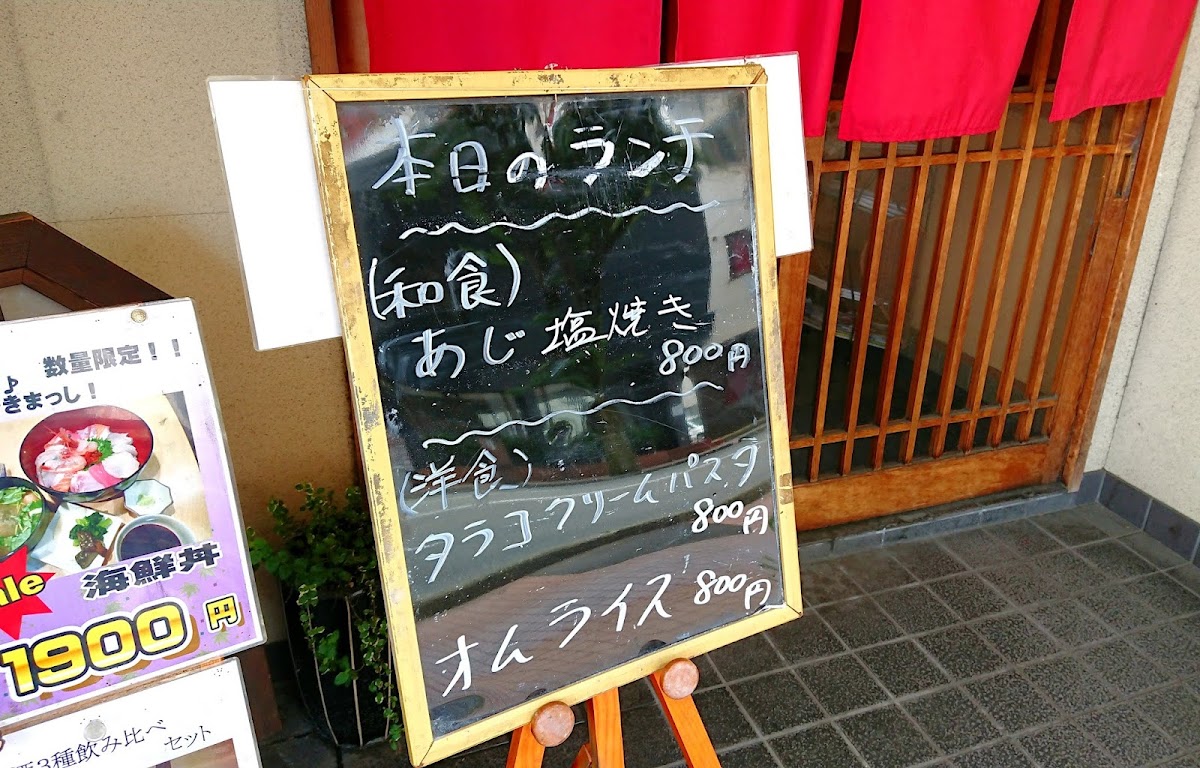 本日のランチ
(和食)
あじ塩焼き
800円
(洋食)
タラコクリームパスタ
800円
オムライス 800円
数量限定!!
♪
きまっし!
海鮮丼
1900円
3種飲み比べ
セット